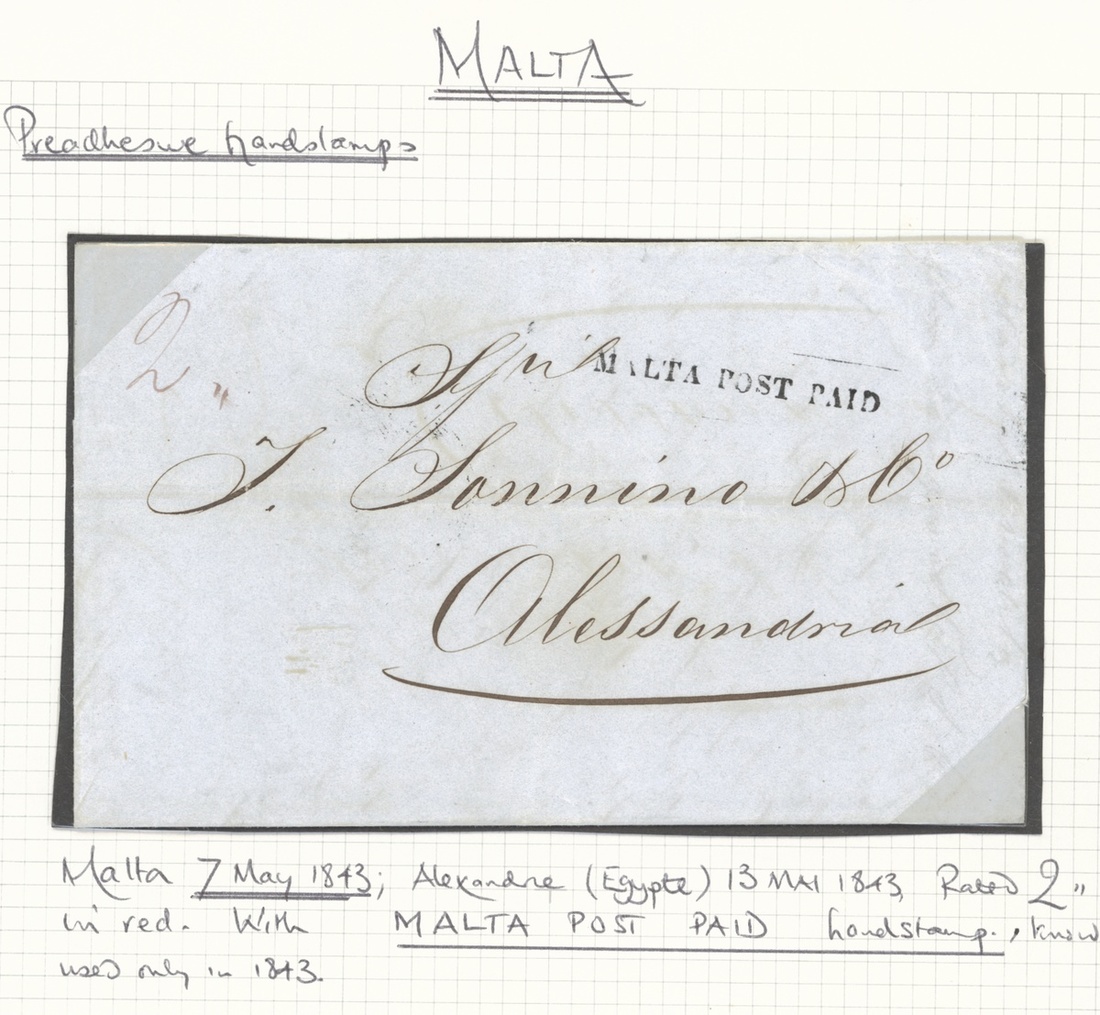 MALTA
Preadhesive handstamps
2 "
MALTA POST PAID
J. Sonnino & Co
Alessandria
Malta 7 May 1843; Alexandrie (Egypte) 13 MAI 1843, Rated 2 "
in red. With MALTA POST PAID handstamp., know
used only in 1843.